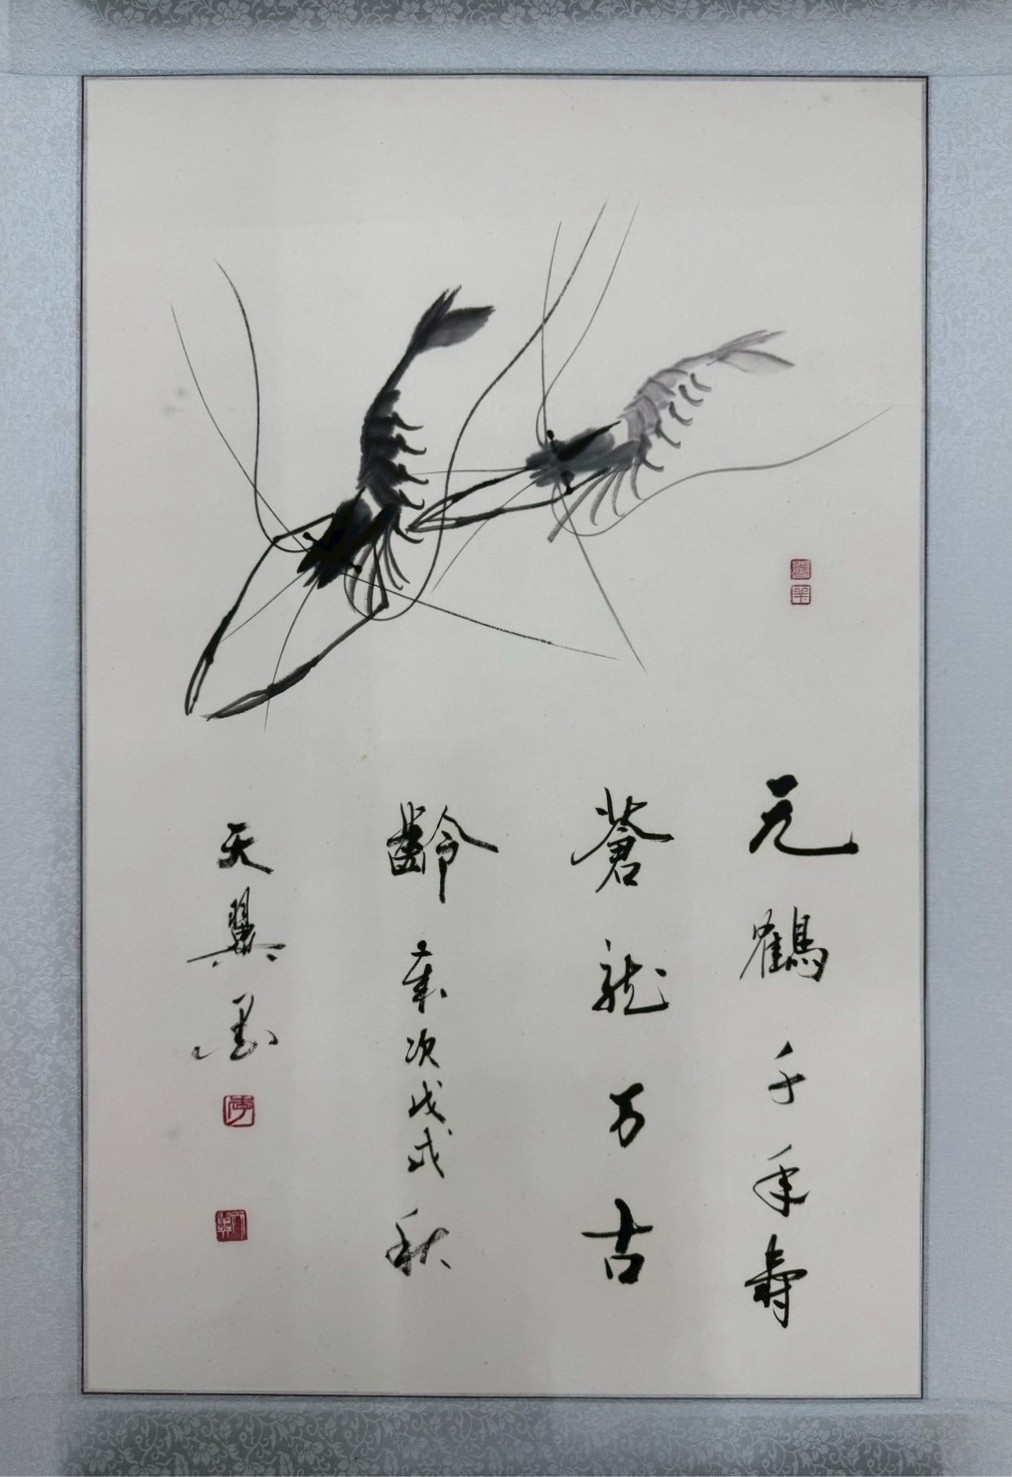 元鶴千年壽
蒼龍万古
齡歲次戊戌秋
天翼